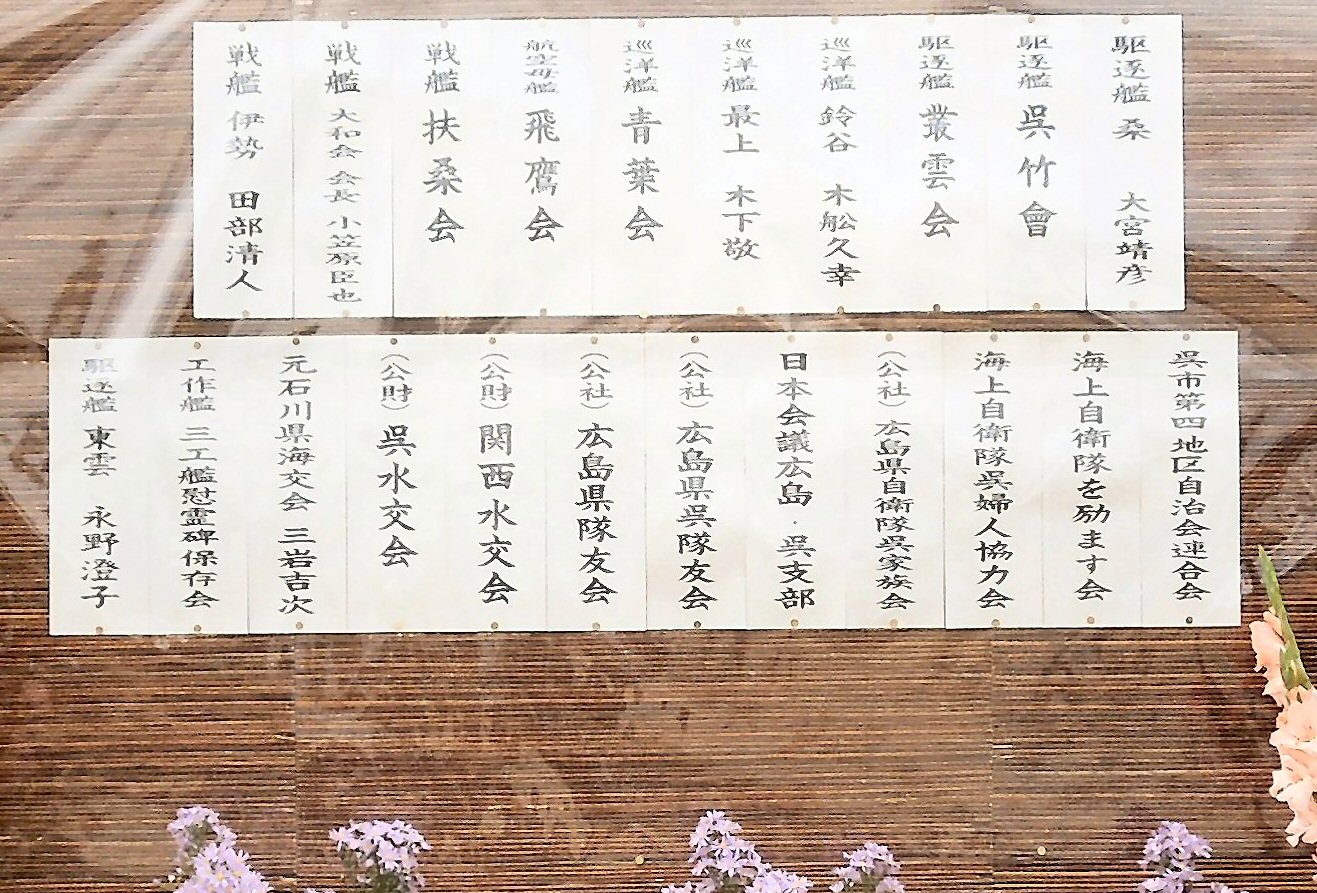 駆逐艦 桑 大宮靖彦
駆逐艦 呉竹會
駆逐艦 叢雲会
巡洋艦 鈴谷 木舩久幸
巡洋艦 最上 木下敬
巡洋艦 青葉会
航空母艦 飛鷹会
戦艦 扶桑会
戦艦 大和会 会長 小笠原臣也
戦艦 伊勢 田部清人
呉市第四地区自治会連合会
海上自衛隊を励ます会
海上自衛隊呉婦人協力会
(公社)広島県自衛隊呉家族会
日本会議広島・呉支部
(公社)広島県呉隊友会
(公社)広島県隊友会
(公財)関西水交会
(公財)呉水交会
元石川県海交会 三岩吉次
工作艦 三工艦慰霊碑保存会
駆逐艦 東雲 永野澄子